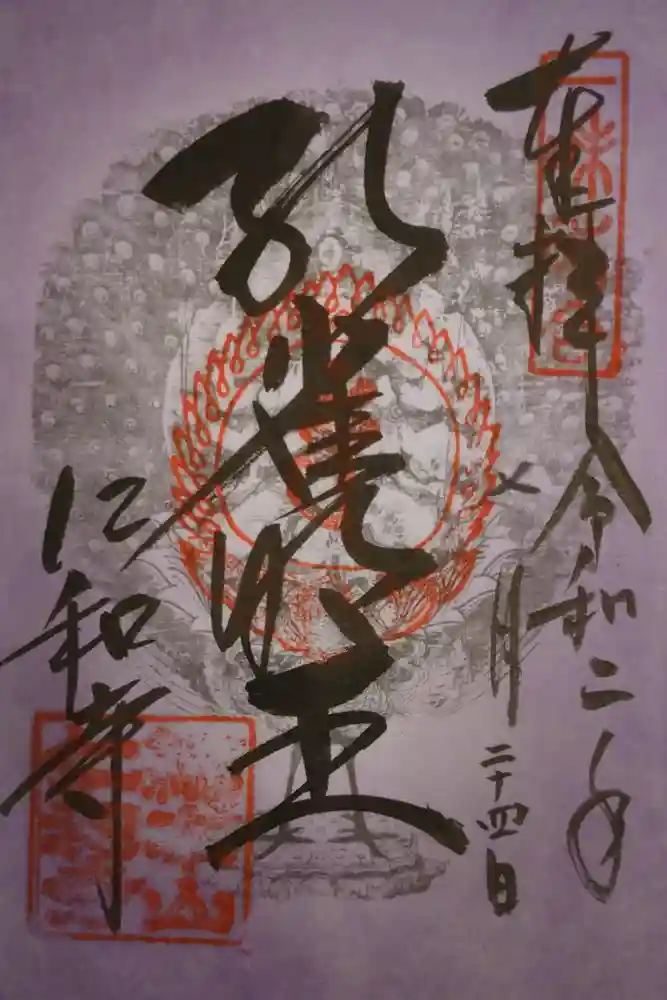 奉拝 令和二年
七月二十四日
孔雀明王
仁和寺